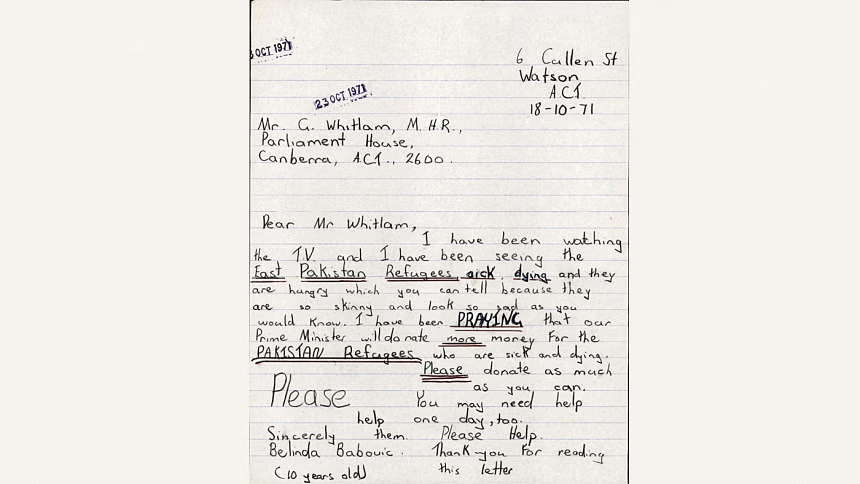 OCT 1971
23 OCT 1971
6 Cullen St
Watson
A.C.T.
18-10-71
Mr. G. Whitlam, M.H.R.,
Parliament House,
Canberra, A.C.T., 2600.
Dear Mr Whitlam,
I have been watching
the T.V. and I have been seeing the
East Pakistan Refugees sick dying and they
are hungry which you can tell because they
are so skinny and look so sad as you
would know. I have been PRAYING that our
Prime Minister will donate more money For the
PAKISTAN Refugees who are sick and dying.
Please donate as much
as you can.
Please You may need help
help one day, too.
Sincerely them. Please Help.
Belinda Babovic. Thank-you For reading
(10 years old) this letter